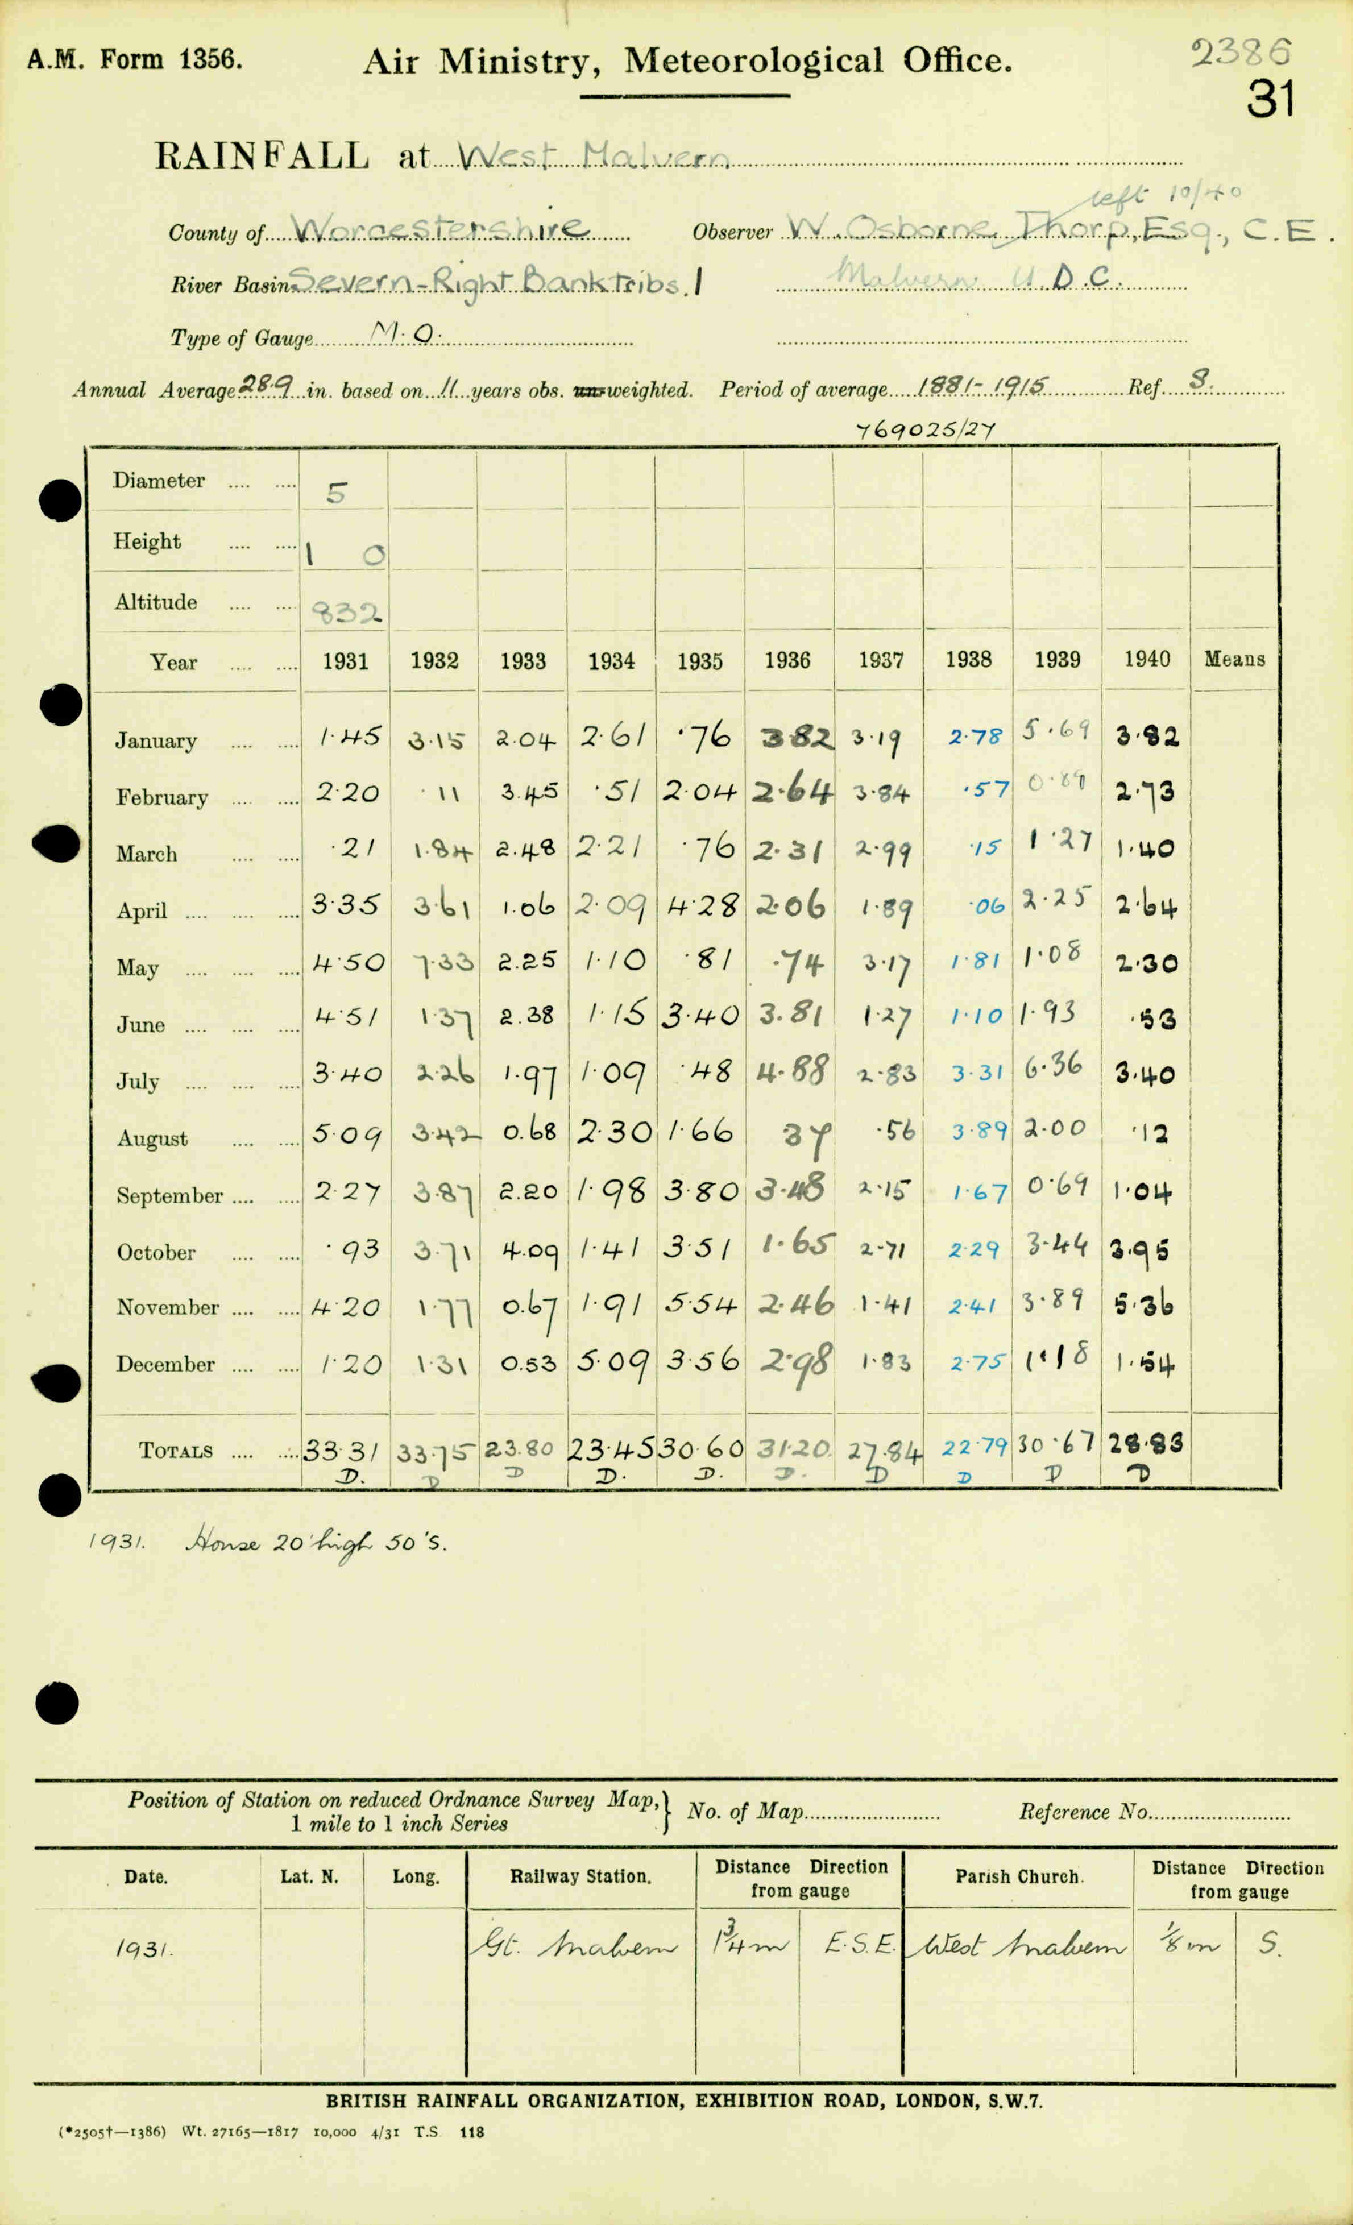 A.M. Form 1356. Air Ministry, Meteorological Office. 2386
31
RAINFALL at West Malvern
left 10/40
County of Worcestershire Observer W. Osborne Thorp, Esq., C.E.
River Basin Severn-Right Bank Tribs. 1 Malvern U.D.C.
Type of Gauge M.O.
Annual Average 28.9 in. based on 11 years obs. un-weighted. Period of average 1881-1915 Ref. S.
769025/27
Diameter 5
Height 1 0
Altitude 832
Year 1931 1932 1933 1934 1935 1936 1937 1938 1939 1940 Means
January 1.45 3.15 2.04 2.61 .76 3.82 3.19 2.78 5.69 3.82
February 2.20 .11 3.45 .51 2.04 2.64 3.84 .57 0.89 2.73
March .21 1.84 2.48 2.21 .76 2.31 2.99 .15 1.27 1.40
April 3.35 3.61 1.06 2.09 4.28 2.06 1.89 .06 2.25 2.64
May 4.50 7.33 2.25 1.10 .81 .74 3.17 1.81 1.08 2.30
June 4.51 1.37 2.38 1.15 3.40 3.81 1.27 1.10 1.93 .53
July 3.40 2.26 1.97 1.09 .48 4.88 2.83 3.31 6.36 3.40
August 5.09 3.42 0.68 2.30 1.66 37 .56 3.89 2.00 .12
September 2.27 3.87 2.20 1.98 3.80 3.48 2.15 1.67 0.69 1.04
October .93 3.71 4.09 1.41 3.51 1.65 2.71 2.29 3.44 3.95
November 4.20 1.77 0.67 1.91 5.54 2.46 1.41 2.41 3.89 5.36
December 1.20 1.31 0.53 5.09 3.56 2.98 1.83 2.75 1.18 1.54
TOTALS 33.31 33.75 23.80 23.45 30.60 31.20 27.84 22.79 30.67 28.83
D. D D D. D. D. D D D D
1931. House 20' high 50's.
Position of Station on reduced Ordnance Survey Map,} No. of Map Reference No.
1 mile to 1 inch Series
Date. Lat. N. Long. Railway Station. Distance Direction from gauge Parish Church. Distance Direction from gauge
1931. Gt. Malvern 1¾m E.S.E. West Malvern ⅛m S.
BRITISH RAINFALL ORGANIZATION, EXHIBITION ROAD, LONDON, S.W.7.
(*2505†—1386) Wt. 27165—1817 10,000 4/31 T.S. 118